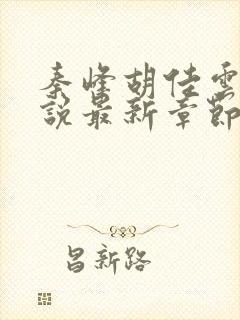 秦峰胡佳雲
說最新章節
昌新路